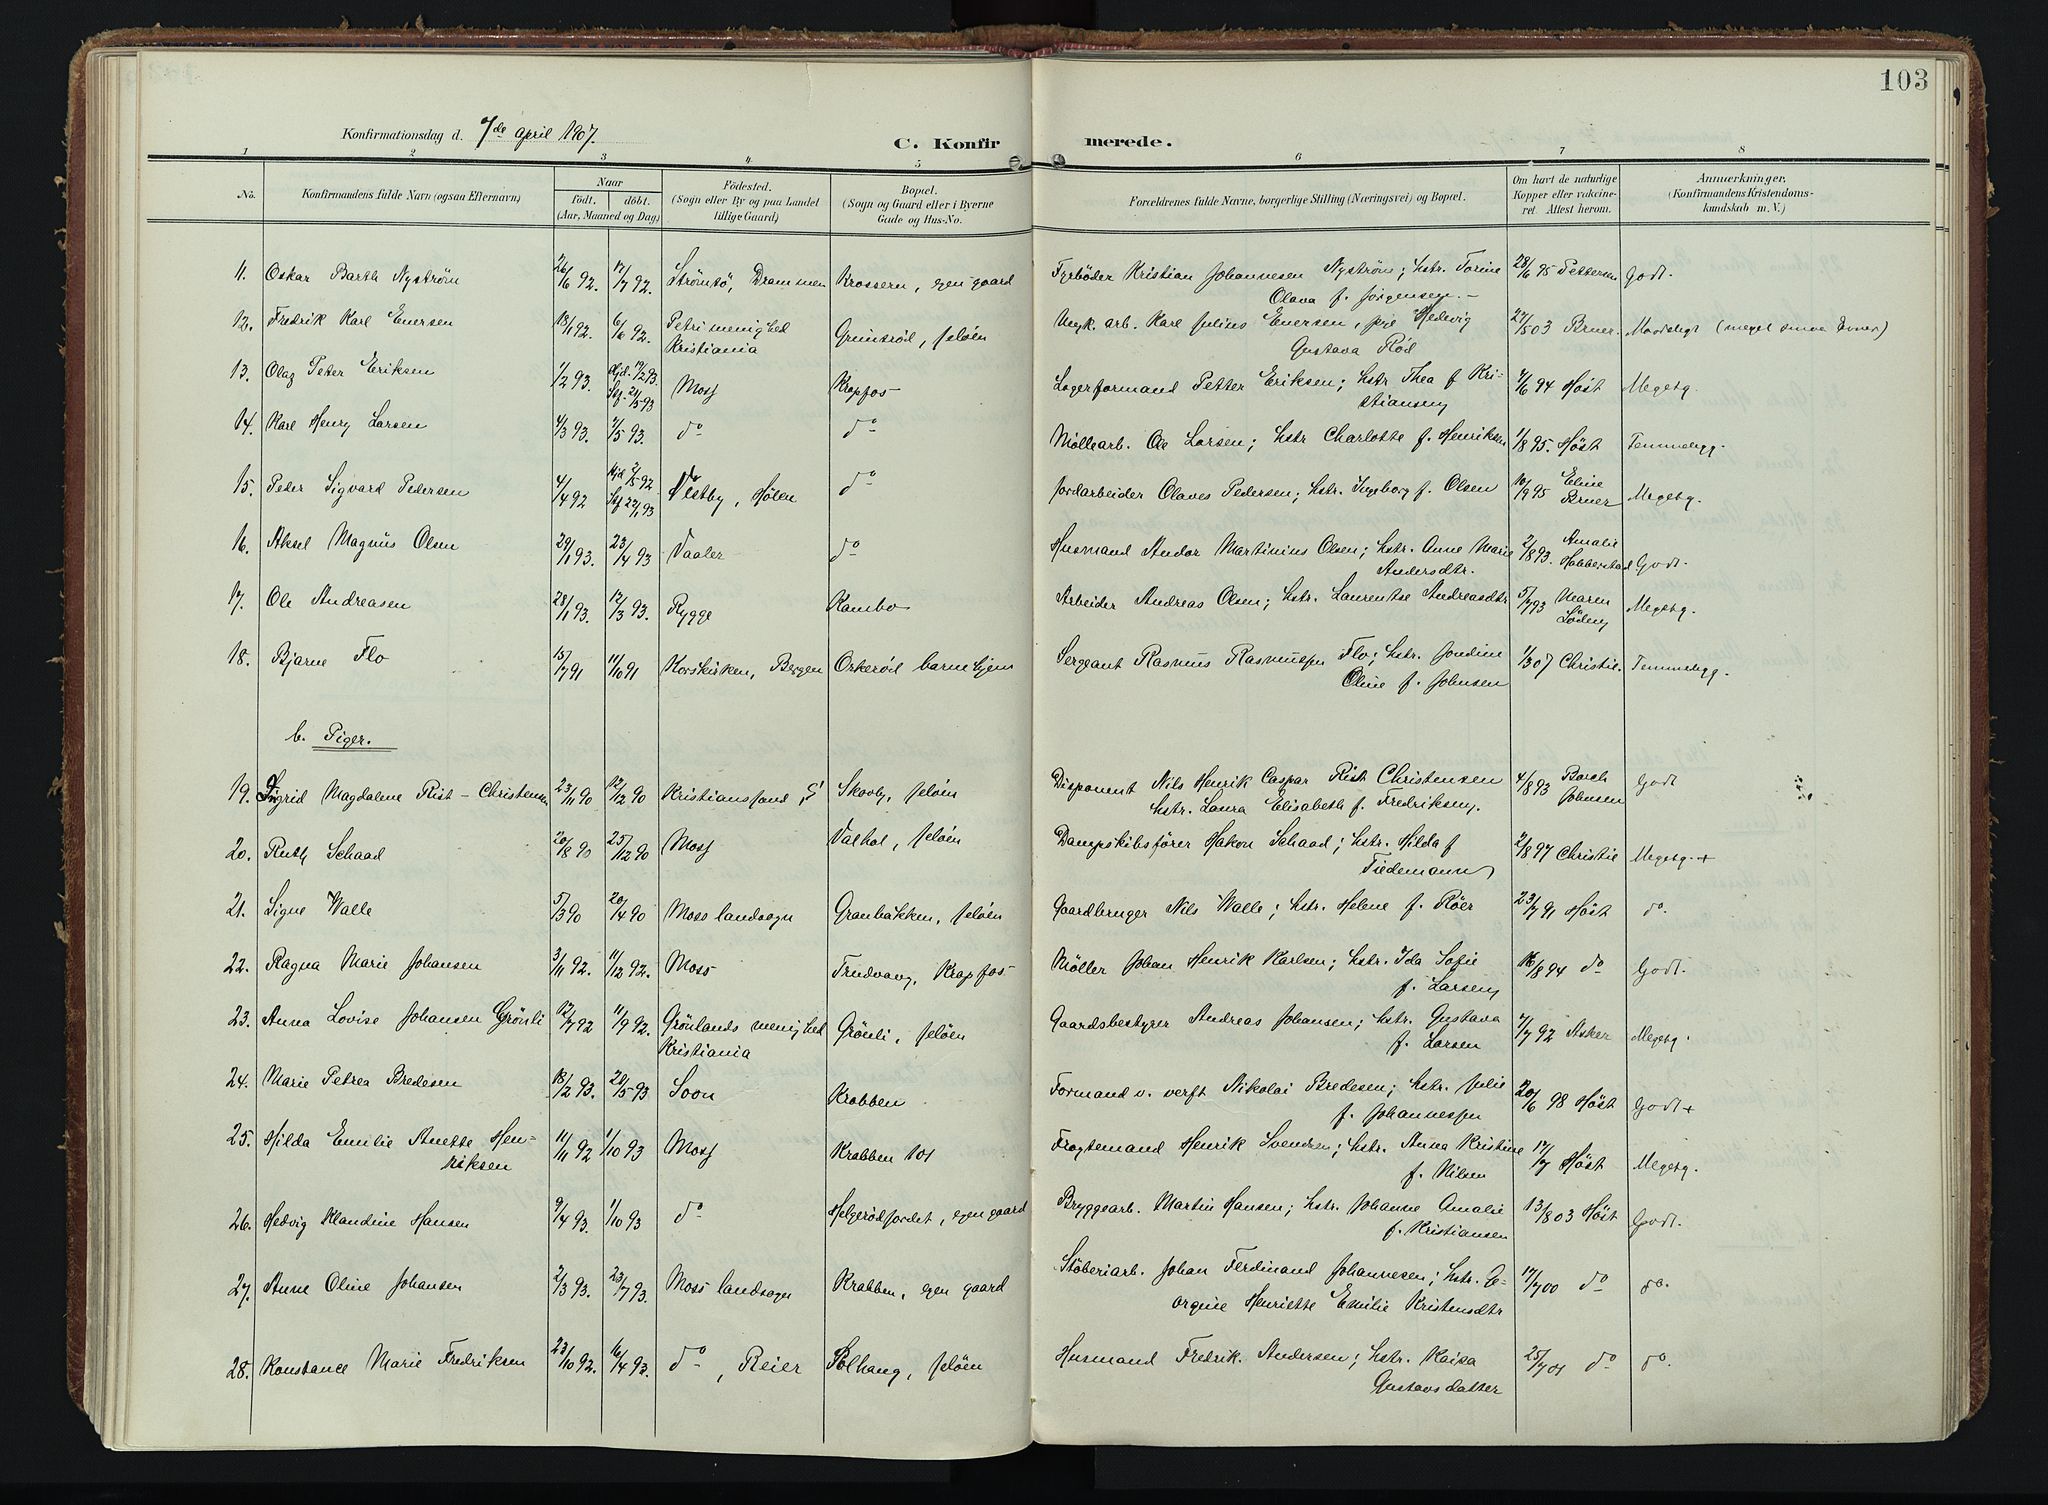 103
Konfirmationsdag d. 7de april 1907.
C. Konfirmerede.
1 2 3 4 5 6 7 8
No. Konfirmandens fulde Navn (ogsaa Efternavn) Naar födt. döbt. (Aar, Maaned og Dag) Födested. (Sogn eller By og paa Landet tillige Gaard) Bopæl. (Sogn og Gaard eller i Byerne Gade og Hus-No. Forældrenes fulde Navne, borgerlige Stilling (Næringsvei) og Bopæl. Om havt de naturlige Kopper eller vakcineret. Attest herom. Anmerkninger. (Konfirmandens Kristendomskundskab m. V.)
11. Oskar Barth Nyström 26/6 92. 17/7 92. Strömsö, Drammen Krossern, egen gaard Fyrböder Kristian Johannesen Nyström; hstr. Torine 28/6 95 Pettersen Godt.
Olava f. Jörgensen. -
12. Fredrik Karl Enersen 18/1 92. 6/6 92. Petri menighed Grimsröd, Jelöen Ungk. arb. Karl Julius Enersen, pige Hedvig 27/5 03 Bruer. Maadeligt (meget smaa Evner)
Kristiania Gustava Röd
13. Olaf Peter Eriksen 1/2 93. Hjd. 19/2 93. Moss Krapfos Lagerformand Petter Eriksen; hstr Thea f Kri- 4/6 94 Höst Megetg.
Stf. 21/5 93 stiansen
14. Karl Henry Larsen 4/3 93. 7/5 93. do do Möllearb. Ole Larsen; hstr Charlotte f. Henriksen 1/8 95. Höst Temmeligg.
15. Peder Sigvard Pedersen 4/4 92 Hjd 2/5 92 Vestby, Hölen do Jordarbeider Olaves Pedersen; hstr. Ingeborg f. Olsen 10/9 95 Eline Bruer Megetg.
Stf 22/1 93
16. Aksel Magnus Olsen 29/1 93. 23/4 93 Vaaler do Husmand Andor Martinius Olsen; hstr. Anne Marie 2/8 93. Amalie Hobberstad Godt.
Andersdtr.
17. Ole Andreasen 28/1 93. 12/3 93. Rygge Kambo Arbeider Andreas Olsen; hstr. Laurentse Andreasdtr 5/7 93 Maren Löden Megetg.
18. Bjarne Flo 15/7 91 11/10 91 Korskirken, Bergen Orkeröd barnehjem Sergeant Rasmus Rasmussen Flo; hstr. Jondine 1/3 07 Christie. Temmeligg.
Oline f. Johnsen
b. Piger.
19. Sigrid Magdalene Rist-Christensen 23/11 90 12/12 90 Kristianssand, S Skovly, Jelöen Disponent Nils Henrik Caspar Rist Christensen 4/8 93 Barch Johnsen Godt
hstr. Laura Elisabeth f. Fredriksen.
20. Ruth Schaad 20/8 90 25/12 90 Moss Valhal, Jelöen Dampskibsförer Hakon Schaad; hstr. Hilda f 2/8 97 Christie Megetg.+
Tiedemann
21. Signe Walle 5/3 90 20/4 90 Moss landsogn Granbakken, Jelöen Gaardbruger Nils Walle; hstr. Helene f. Röer 23/7 91 Höst do.
22. Ragna Marie Johansen 3/11 92. 11/12 92. Moss Trudvang, Krapfos Möller Johan Henrik Karlsen; hstr. Ida Sofie 16/8 94 do Godt.
f. Larsen
23. Anna Lovise Johansen Grönli 12/7 92 11/9 92. Grönlands menighed Grönli, Jelöen Gaardsbestyrer Andreas Johansen; hstr. Gustava 7/7 92 Asker Megetg.
Kristiania f. Larsen
24. Marie Petrea Bredesen 18/2 93. 21/5 93 Soon Krabben Formand v. verft Nikolai Bredesen; hstr. Julie 20/6 98 Höst Godt+
f. Johannessen
25. Hilda Emilie Anette Hen- 11/11 92 1/10 93 Moss Krabben 101 Fragtemand Henrik Svendsen; hstr. Anna Kristine 17/7 Höst Megetg.
riksen f. Nilsen
26. Hedvig Klandine Hansen 9/4 93. 1/10 93 do Helgerödfordet, egen gaard Bryggearb. Martin Hansen; hstr. Johanne Amalie 13/8 03 Höst Godt.
f. Kristiansen
27. Anne Oline Johansen 2/3 93. 23/7 93. Moss landsogn Krabben, egen gaard Stöberiarb. Johan Ferdinand Johannesen; hstr. Ge- 17/7 00 do do.
orgine Henriette Emilie Kristensdtr
28. Konstance Marie Fredriksen 23/10 92. 16/4 93. do, Reier Solhaug, Jelöen Husmand Fredrik. Andersen; hstr. Kaisa 25/7 01 do do.
Gustavsdatter